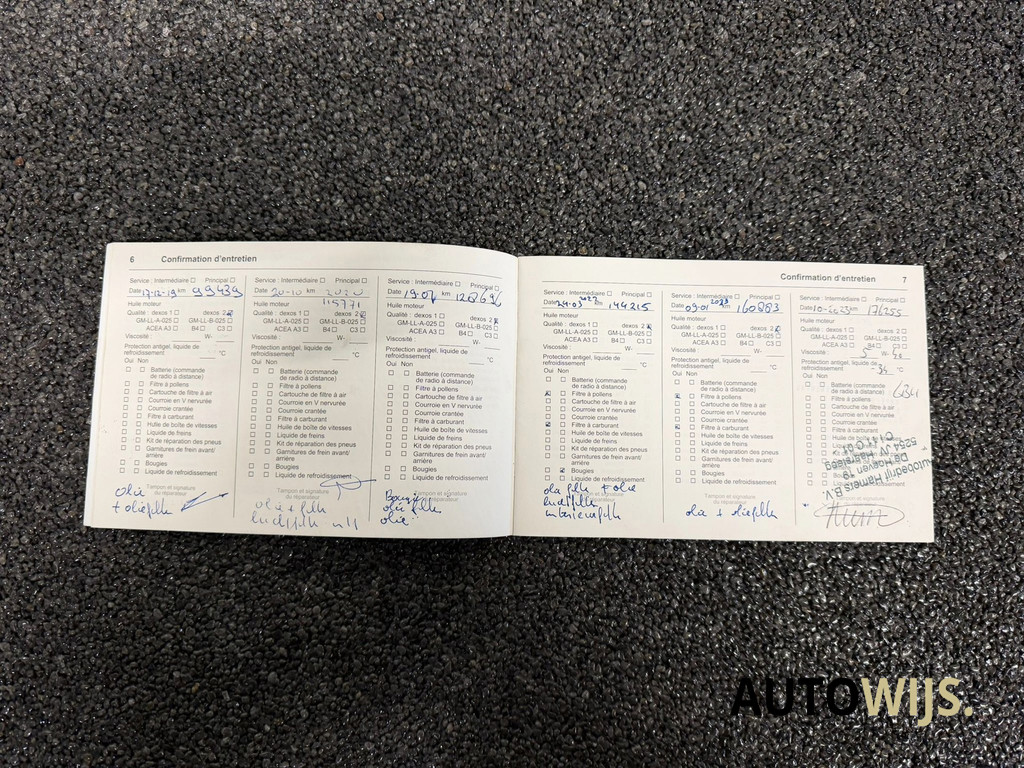 6 Confirmation d'entretien
Service : Intermédiaire Principal
Date 17-12-19 km 99439
Huile moteur
Qualité : dexos 1 dexos 2
GM-LL-A-025 GM-LL-B-025
ACEA A3 B4 C3
Viscosité : W-
Protection antigel, liquide de
refroidissement °C
Oui Non
Batterie (commande
de radio à distance)
Filtre à pollens
Cartouche de filtre à air
Courroie en V nervurée
Courroie crantée
Filtre à carburant
Huile de boîte de vitesses
Liquide de freins
Kit de réparation des pneus
Garnitures de frein avant/
arrière
Bougies
Liquide de refroidissement
Tampon et signature
du réparateur
olie
+ oliefilter
Service : Intermédiaire Principal
Date 20-10 km 2020
115771
Huile moteur
Qualité : dexos 1 dexos 2
GM-LL-A-025 GM-LL-B-025
ACEA A3 B4 C3
Viscosité : W-
Protection antigel, liquide de
refroidissement °C
Oui Non
Batterie (commande
de radio à distance)
Filtre à pollens
Cartouche de filtre à air
Courroie en V nervurée
Courroie crantée
Filtre à carburant
Huile de boîte de vitesses
Liquide de freins
Kit de réparation des pneus
Garnitures de frein avant/
arrière
Bougies
Liquide de refroidissement
Tampon et signature
du réparateur
olie + filter
Service : Intermédiaire Principal
Date 19-07 km 128696
Huile moteur
Qualité : dexos 1 dexos 2
GM-LL-A-025 GM-LL-B-025
ACEA A3 B4 C3
Viscosité : W-
Protection antigel, liquide de
refroidissement °C
Oui Non
Batterie (commande
de radio à distance)
Filtre à pollens
Cartouche de filtre à air
Courroie en V nervurée
Courroie crantée
Filtre à carburant
Huile de boîte de vitesses
Liquide de freins
Kit de réparation des pneus
Garnitures de frein avant/
arrière
Bougies
Liquide de refroidissement
Tampon et signature
du réparateur
Bougie
olie filter
olie
Confirmation d'entretien 7
Service : Intermédiaire Principal
Date 24-03 2022 km 144215
Huile moteur
Qualité : dexos 1 dexos 2
GM-LL-A-025 GM-LL-B-025
ACEA A3 B4 C3
Viscosité : W-
Protection antigel, liquide de
refroidissement °C
Oui Non
Batterie (commande
de radio à distance)
Filtre à pollens
Cartouche de filtre à air
Courroie en V nervurée
Courroie crantée
Filtre à carburant
Huile de boîte de vitesses
Liquide de freins
Kit de réparation des pneus
Garnitures de frein avant/
arrière
Bougies
Liquide de refroidissement
Tampon et signature
du réparateur
olie filter + olie
luchtfilter
interieurfilter
Service : Intermédiaire Principal
Date 09-01 2023 km 160883
Huile moteur
Qualité : dexos 1 dexos 2
GM-LL-A-025 GM-LL-B-025
ACEA A3 B4 C3
Viscosité : W-
Protection antigel, liquide de
refroidissement °C
Oui Non
Batterie (commande
de radio à distance)
Filtre à pollens
Cartouche de filtre à air
Courroie en V nervurée
Courroie crantée
Filtre à carburant
Huile de boîte de vitesses
Liquide de freins
Kit de réparation des pneus
Garnitures de frein avant/
arrière
Bougies
Liquide de refroidissement
Tampon et signature
du réparateur
olie + oliefilter
Service : Intermédiaire Principal
km 176255
Huile moteur
Qualité : dexos 1 dexos 2
GM-LL-A-025 GM-LL-B-025
ACEA A3 B4 C3
Viscosité : 5 W-
Protection antigel, liquide de
refroidissement -34 °C
Oui Non
Batterie (commande
de radio à distance)
Filtre à pollens
Cartouche de filtre à air
Courroie en V nervurée
Courroie crantée
Filtre à carburant
Huile de boîte
Liquide de freins
Kit de réparation
Garnitures de
arrière
Bougies
Liquide de
Autobedrijf Hamers B.V.
De Hoeven 19
Tampon et signature
AUTOWIJS.